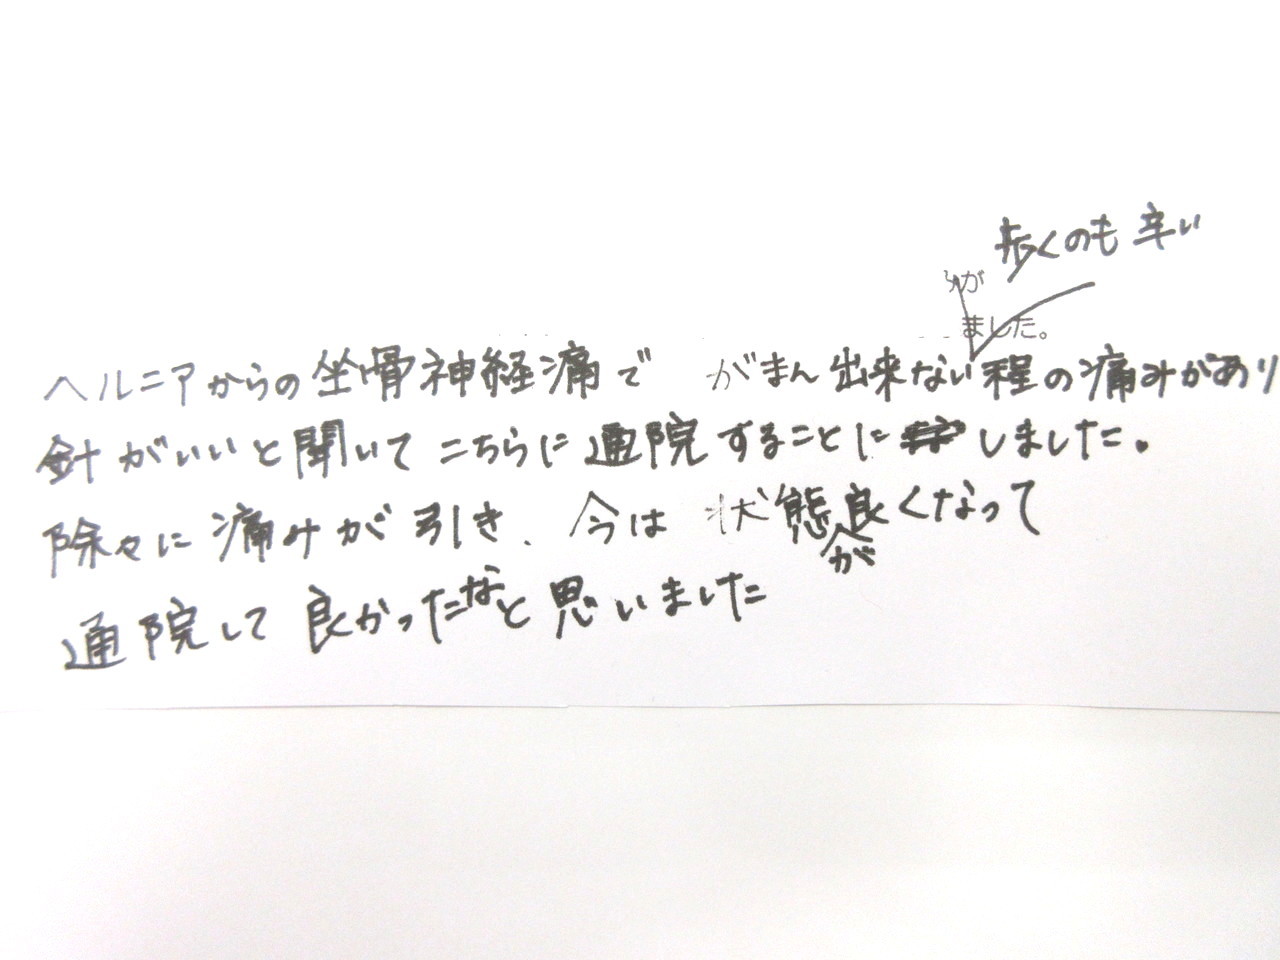 歩くのも辛い
が
ました。
ヘルニアからの坐骨神経痛で がまん出来ない程の痛みがあり
針がいいと聞いてこちらに通院することにしました。
除々に痛みが引き、今は状態が良くなって
通院して良かったなと思いました